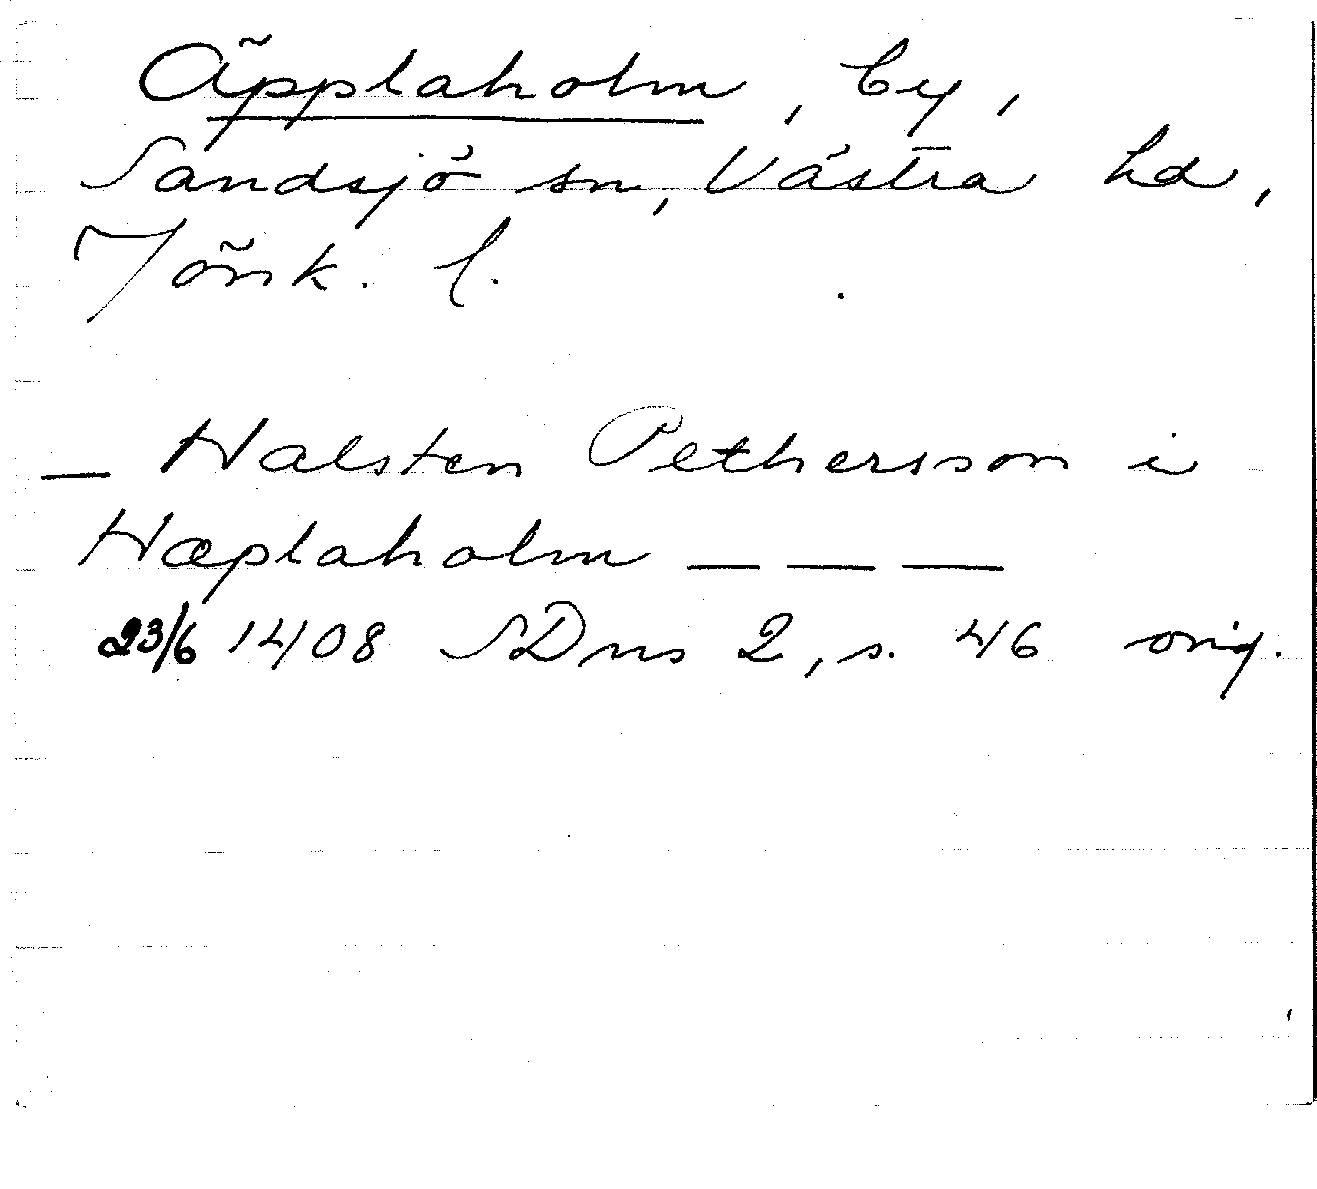 Äpplaholm, by,
Sandsjö sn, Västra hd,
Jönk. l.
— Halsten Pethersson i
Hæplaholm — — —
23/6 1408 SDns 2, s. 46 orig.